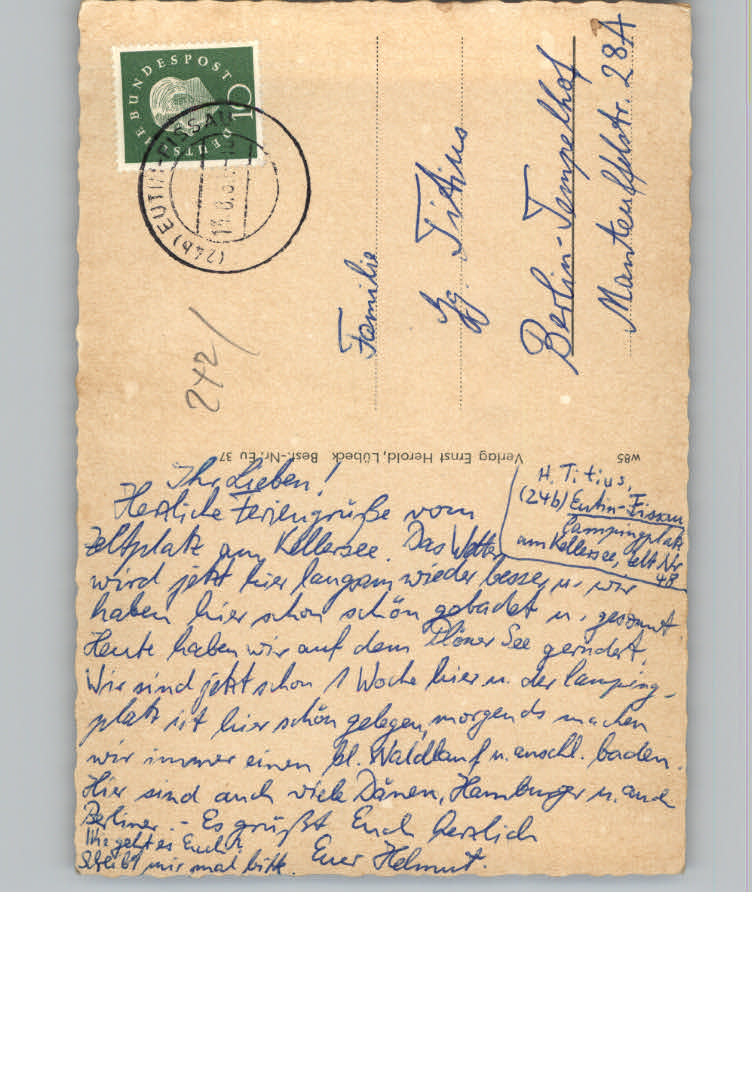 DEUTSCHE BUNDESPOST
10
(24b) EUTIN-FISSAU
242/
Familie
Hg. Titius
Berlin-Tempelhof
Manteuffelstr. 28A
W85 Verlag Ernst Herold, Lübeck Best.-Nr. Eu 37
H. Titius,
(24b) Eutin-Fissau
Campingplatz
am Kellersee, Zelt Nr
48
Ihr Lieben!
Herzliche Feriengrüße vom
Zeltplatz am Kellersee. Das Wetter
wird jetzt hier langsam wieder besser u. wir
haben hier schon schön gebadet u. gesonnt
Heute haben wir auf dem Plöner See gerudert.
Wir sind jetzt schon 1 Woche hier u. der Camping-
platz ist hier schön gelegen, morgends machen
wir immer einen kl. Waldlauf u. anschl. baden.
Hier sind auch viele Dänen, Hamburger u. auch
Berliner. - Es grüßt Euch herzlich
Euer Helmut.
Wie geht es Euch?
Schreibt mir mal bitte.